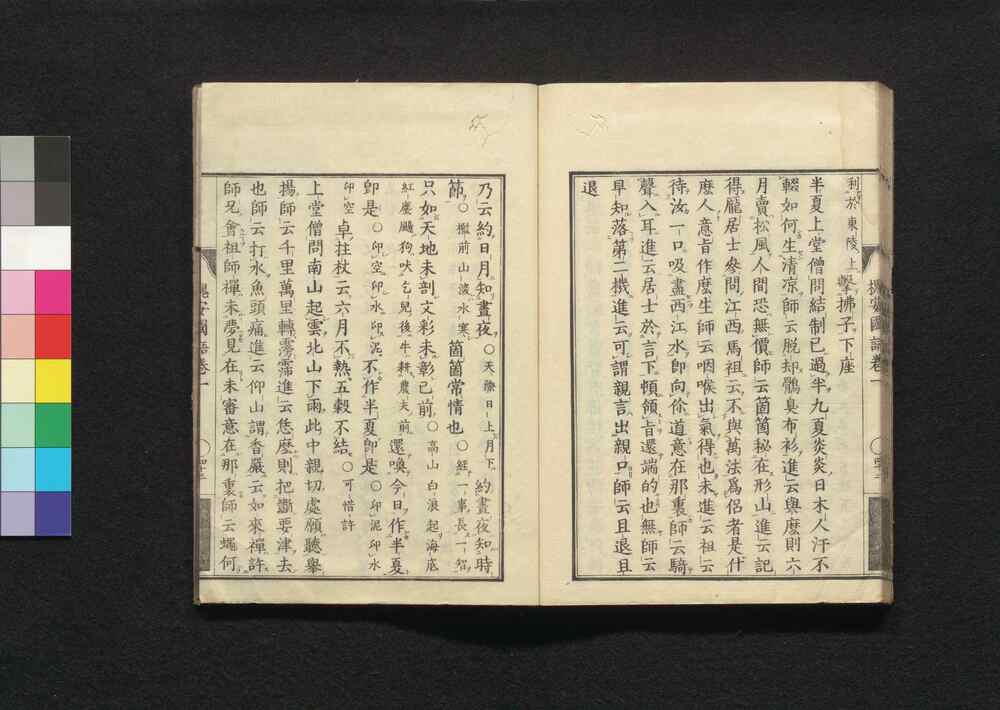 利於東陵上擊拂子下座
半夏上堂僧問結制已過半九夏炎炎日木人汗不
輟如何生清凉師云脫却鶻臭布衫進云與麼則六
月賣松風人間恐無價師云箇箇秘在形山進云記
得龐居士參問江西馬祖云不與萬法爲侶者是什
麽人意旨作麽生師云咽喉出氣得也未進云祖云
待汝一口吸盡西江水即向你道意在那裏師云騎
聲入耳進云居士於言下頓領旨還端的也無師云
早知落第二機進云可謂親言出親口師云且退且
退
槐安國語卷一
乃云約日月知晝夜○天除日上月下約晝夜知時
節○檻前山淡水寒箇箇常情也○經一事長一智
只如天地未剖文彩未彰已前○高山白浪起海底
紅塵颺狗吠乞兒後牛耕農夫前還喚今日作半夏
卽是○印空印水印泥不作半夏卽是○印泥印水
印空卓拄杖云六月不熱五穀不結○可惜許
上堂僧問南山起雲北山下雨此中親切處願聽擧
揚師云千里萬里轉霶霈進云恁麽則把斷要津去
也師云打水魚頭痛進云仰山謂香嚴云如來禪許
師兄會祖師禪未夢見在未審意在那裏師云蠅何
槐安國語卷一